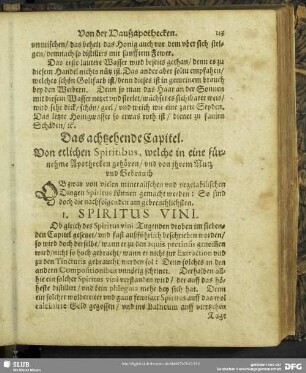 Von der Haußapothecken.
213
vnmischen/das behelt das Honig auch vor dem vber sich stei-
gen/demnach so distillirs mit sanfftem Fewer.
Das erste lautere Wasser wird beseits gethan/denn es zu
diesem Handel nichts nütz ist. Das ander aber solen empfahen/
welches schön Goltfarb ist/denn dieses ist in gemeinem brauch
bey den Weibern. Denn so man das Haar an der Sonnen
mit diesem Wasser netzet vnd strelet/wächset es sichtbarer weis/
wird sehr dick/schön/geel/vnd weich wie eine zarte Seyden.
Das letzte Honigwasser so etwas roth ist/dienet zu faulen
Schäden/rc.
Das achtzehende Capitel.
Von etlichen Spiritibus, welche in eine für-
nehme Apothecken gehören/vnd von jhrem Nutz
vnd Gebrauch
Obzwar von vielen mineralischen vnd vegetabilischen
Dingen Spiritus können gemacht werden: So sind
doch die nachfolgenden am gebreuchlichsten.
1. SPIRITUS VINI.
Ob gleich des Spiritus vini Tugenden droben im siebenden
Capitel gesetzet/vnd fast außführlich beschrieben worden/
so wird doch derselbe/wann er zu den aquis preciosis genommen
wird/nicht so hoch gebraucht/wann er nicht zur Extraction vnd
zu den Tincturis gebraucht werden sol: Denn solches in den
andern Compositionibus vnnötig schiene. Derhalben all-
hie ein solcher Spiritus vini verstanden wird/der auff das hö-
heste distilliret/vnd kein phlegma mehr bey sich hat. Denn
ein solcher wolbereiter vnd gantz fewriger Spiritus auff das wol
calcinirte Gold gegossen/vnd ins Balneum auff viertzehen
Tage
SLUB